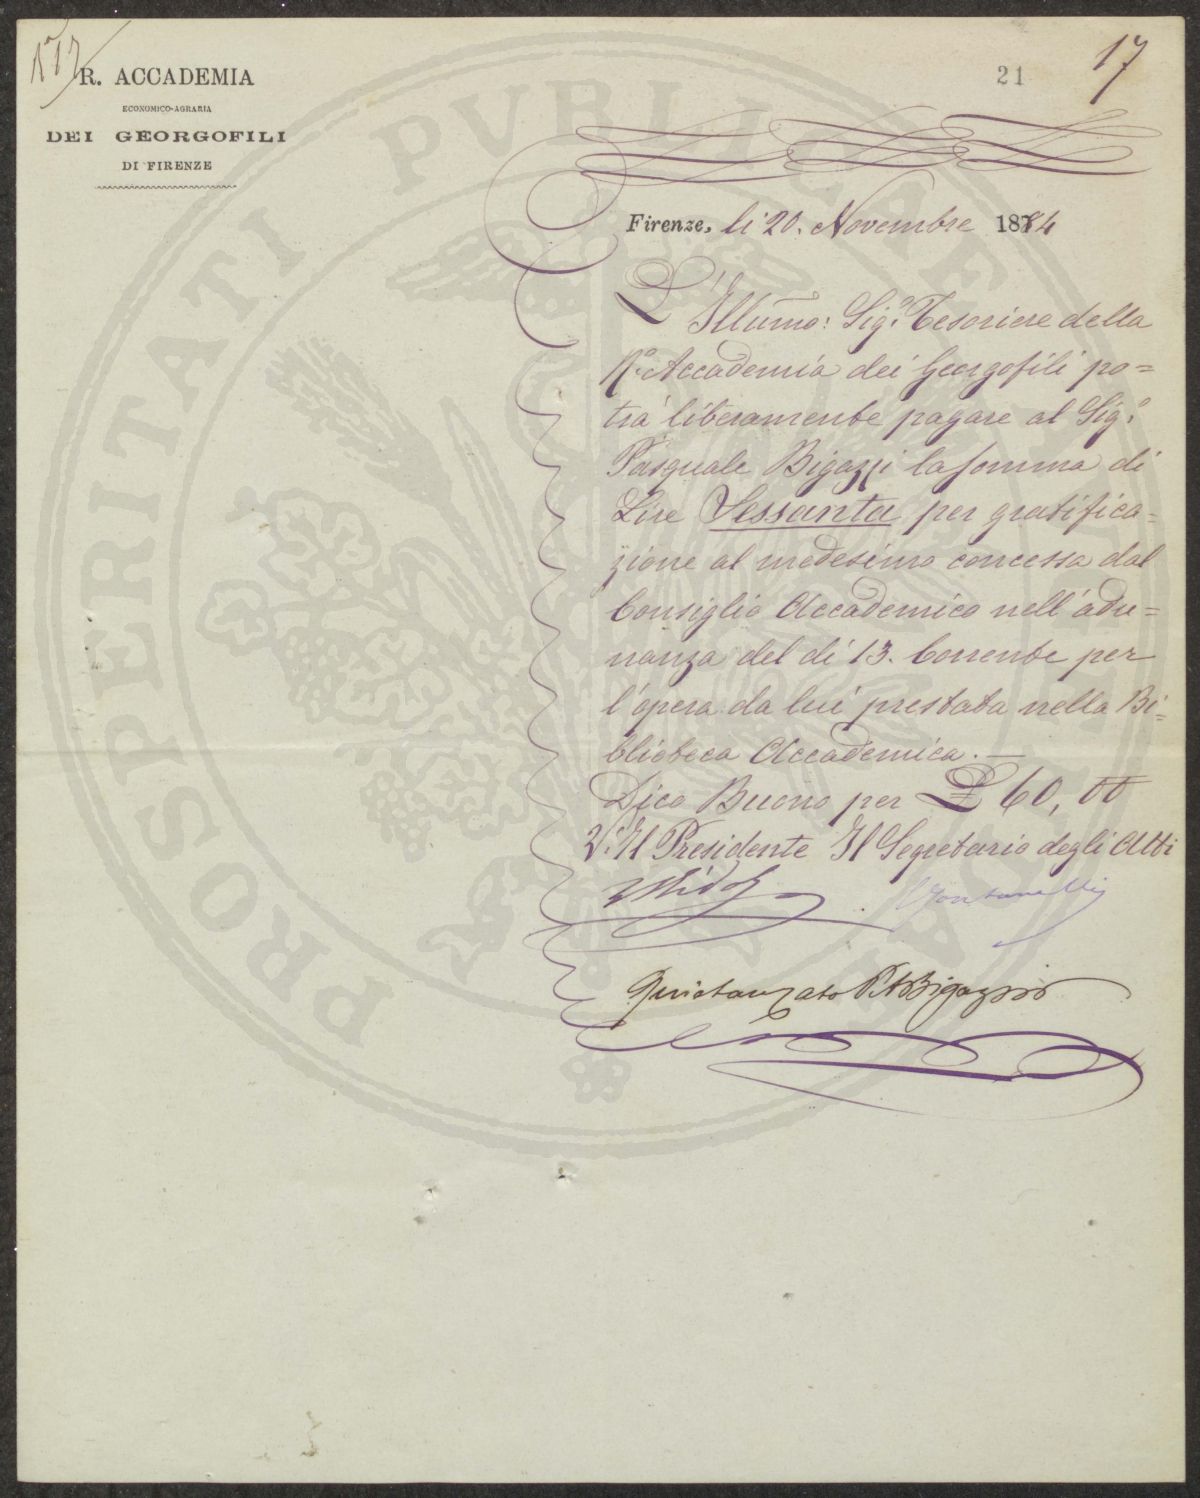 N° 17
R. ACCADEMIA
ECONOMICO-AGRARIA
DEI GEORGOFILI
DI FIRENZE
21
17
Firenze, li 20. Novembre 1884
L'Illumo: Sigr. Tesoriere della
Rª. Accademia dei Georgofili po=
trà liberamente pagare al Sigr.
Pasquale Bigazzi la somma di
Lire Sessanta per gratifica=
zione al medesimo concessa dal
Consiglio Accademico nell'adu=
nanza del dì 13. Corrente per
l'opera da lui prestata nella Bi=
blioteca Accademica.—
Dico Buono per £ 60,00
V. Il Presidente Il Segretario degli Atti
Fontanelli
Quietanzato P. Bigazzi
PROSPERITATI PVBLICAE AVGENDAE